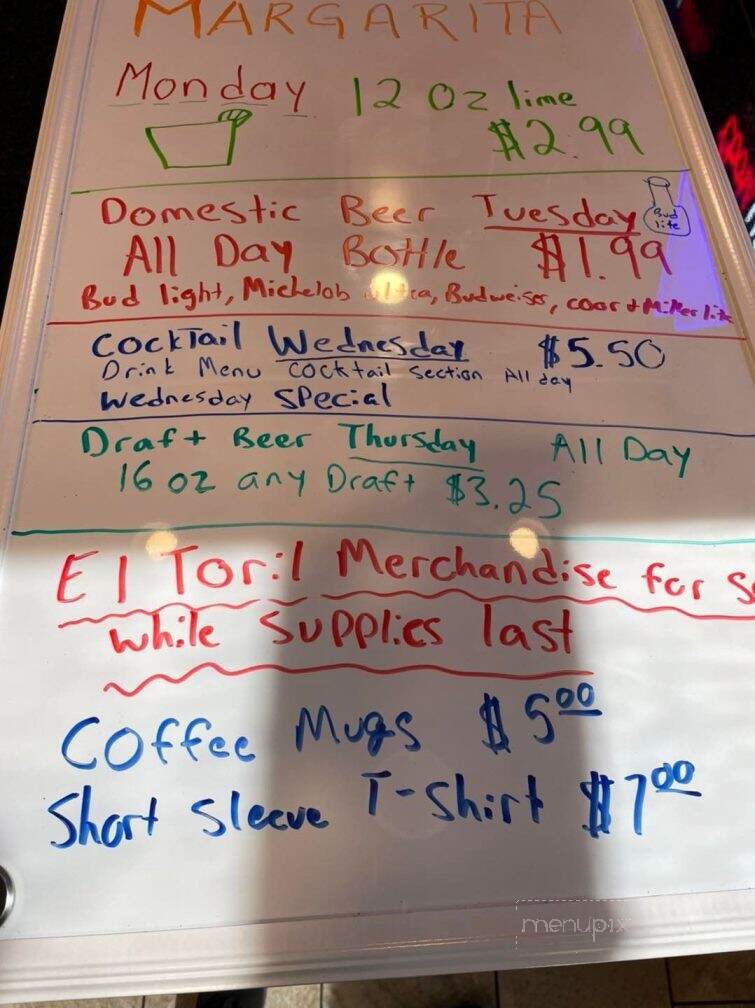 MARGARITA
Monday 12 oz lime
$2.99
Domestic Beer Tuesday
Bud lite
All Day Bottle $1.99
Bud light, Michelob ultra, Budweiser, coor + Miller lite
Cocktail Wednesday $5.50
Drink Menu cocktail section All day
Wednesday special
Draft Beer Thursday All Day
16 oz any Draft $3.25
El Toril Merchandise for
while supplies last
Coffee Mugs $5.00
Short Sleeve T-Shirt $7.00
menupix